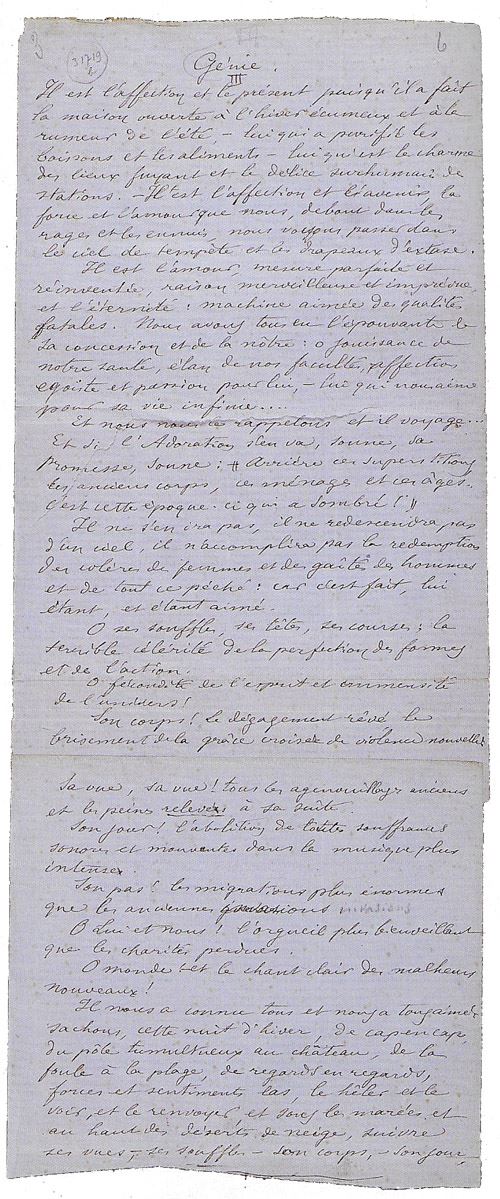 3
31719
6
Génie.
III
Il est l'affection et le présent puisqu'il a fait
la maison ouverte à l'hiver écumeux et à la
rumeur de l'été, – lui qui a purifié les
boissons et les aliments – lui qui est le charme
des lieux fuyant et le délice surhumain de
stations. – Il est l'affection et l'avenir, la
force et l'amour que nous, debout dans les
rages et les ennuis, nous voyons passer dans
le ciel de tempête et les drapeaux d'extase.
Il est l'amour, mesure parfaite et
réinventée, raison merveilleuse et imprévue
et l'éternité : machine aimée des qualités
fatales. Nous avons tous eu l'épouvante de
sa concession et de la nôtre : o jouissance de
notre santé, élan de nos facultés, affection
egoïste et passion pour lui, – lui qui nous aime
pour sa vie infinie....
Et nous nous le rappelons et il voyage...
Et si l'Adoration s'en va, sonne, sa
Promesse, sonne : " Arrière ces superstitions,
ces anciens corps, ces ménages et ces âges.
C'est cette époque-ci qui a sombré ! "
Il ne s'en ira pas, il ne redescendra pas
d'un ciel, il n'accomplira pas la rédemption
des colères de femmes et des gaîtés des hommes
et de tout ce péché : car c'est fait, lui
étant, et étant aimé.
O ses souffles, ses têtes, ses courses ; la
terrible célérité de la perfection des formes
et de l'action.
O fécondité de l'esprit et immensité
de l'univers !
Son corps ! Le dégagement rêvé, le
brisement de la grâce croisée de violence nouvelle !
Sa vue, sa vue ! tous les agenouillages anciens
et les peines relevés à sa suite.
Son jour ! l'abolition de toutes souffrances
sonores et mouvantes dans la musique plus
intense.
Son pas ! les migrations plus énormes
que les anciennes invasions
O Lui et nous ! l'orgueil plus bienveillant
que les charités perdues.
O monde ! – et le chant clair des malheurs
nouveaux !
Il nous a connu tous et nous a tous aimé,
sachons, cette nuit d'hiver, de cap en cap,
du pôle tumultueux au château, de la
foule à la plage, de regards en regards,
forces et sentiments las, le héler et le
voir, et le renvoyer et sous les marées et
au haut des déserts de neige, suivre
ses vues, – ses souffles – son corps, – son jour.